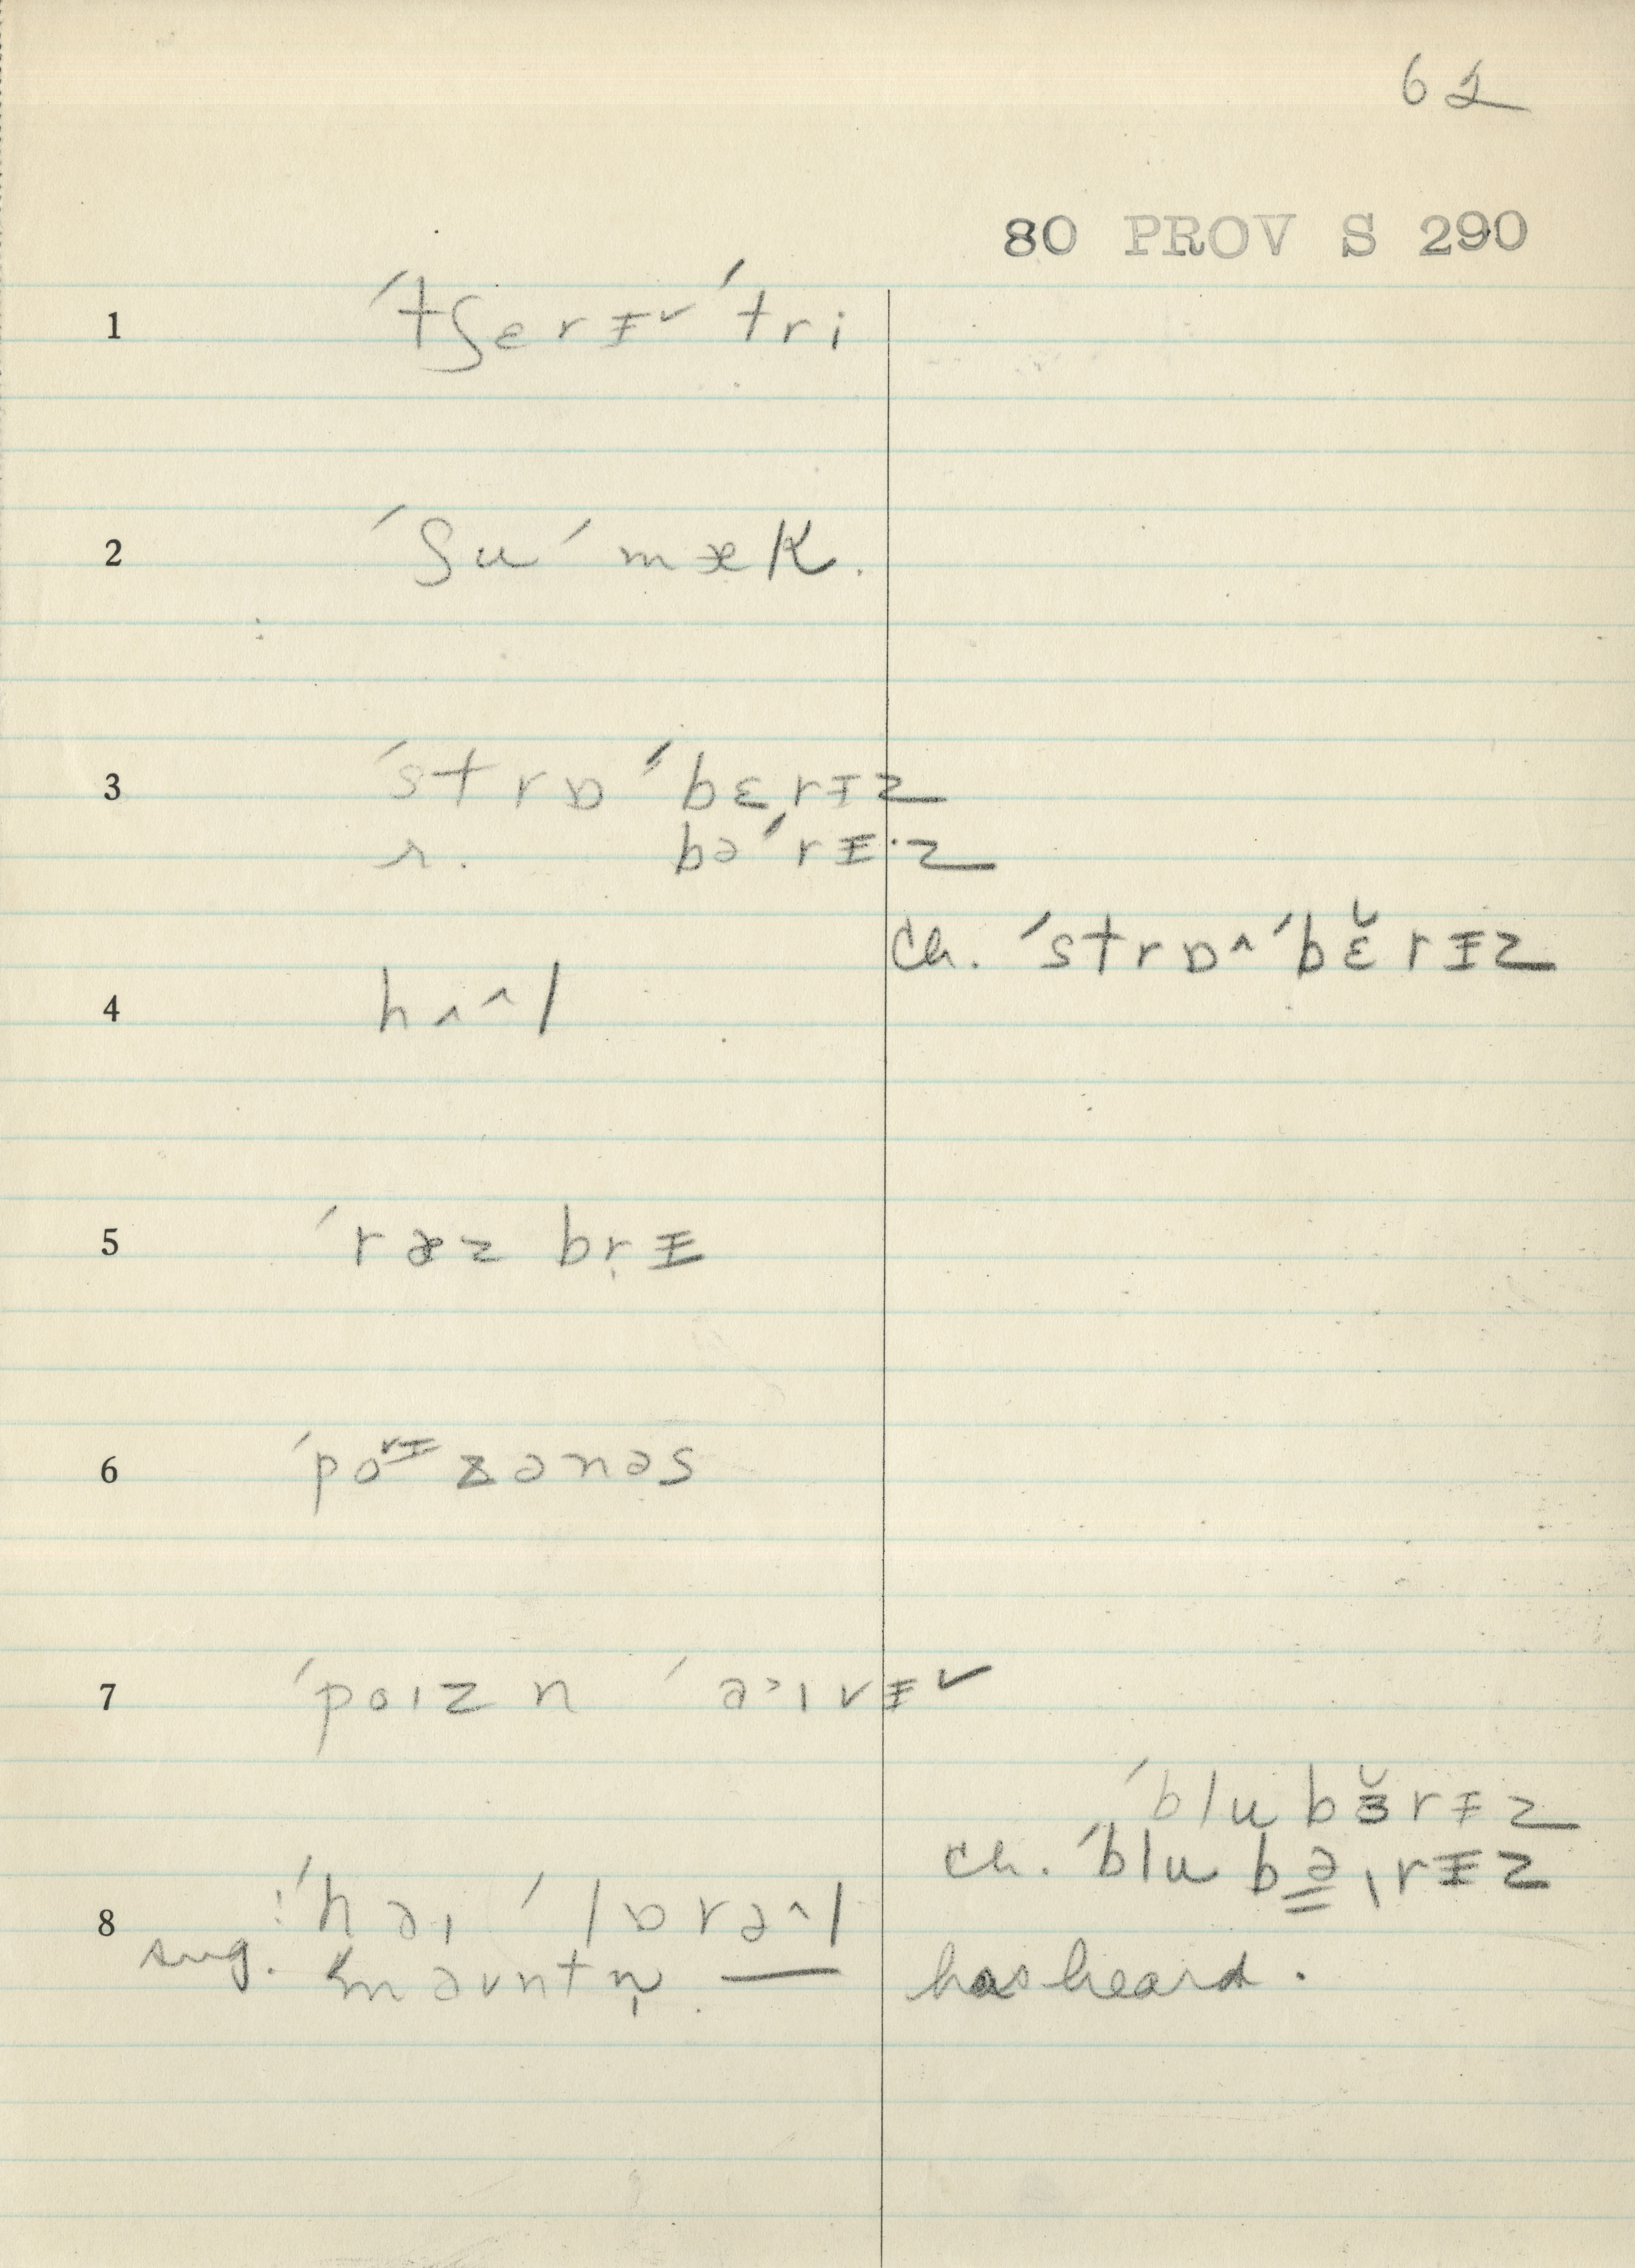 62
80 PROV S 290
1 ´tʃɛrɪ̵˅ ´tri
2 ´ʃu ´mæk.
3 ´strɒ ´bɛrɪ̵z
r. bə´rɪ̵·z
ch. ´strɒ^ ´bɛ̆rɪ̵z
4 hʌ^l
5 ´ræz br̩ɪ̵
6 ´porɪ̵zənəs
7 ´poɪzn ´ə˃ɪvɪ̵˅
´blubɜ̆rɪ̵z
ch. ´blubə̳ˌrɪ̵z
8 !´həɪ ´lɒrə^l
sug. ´məʊntn̩ — has heard.